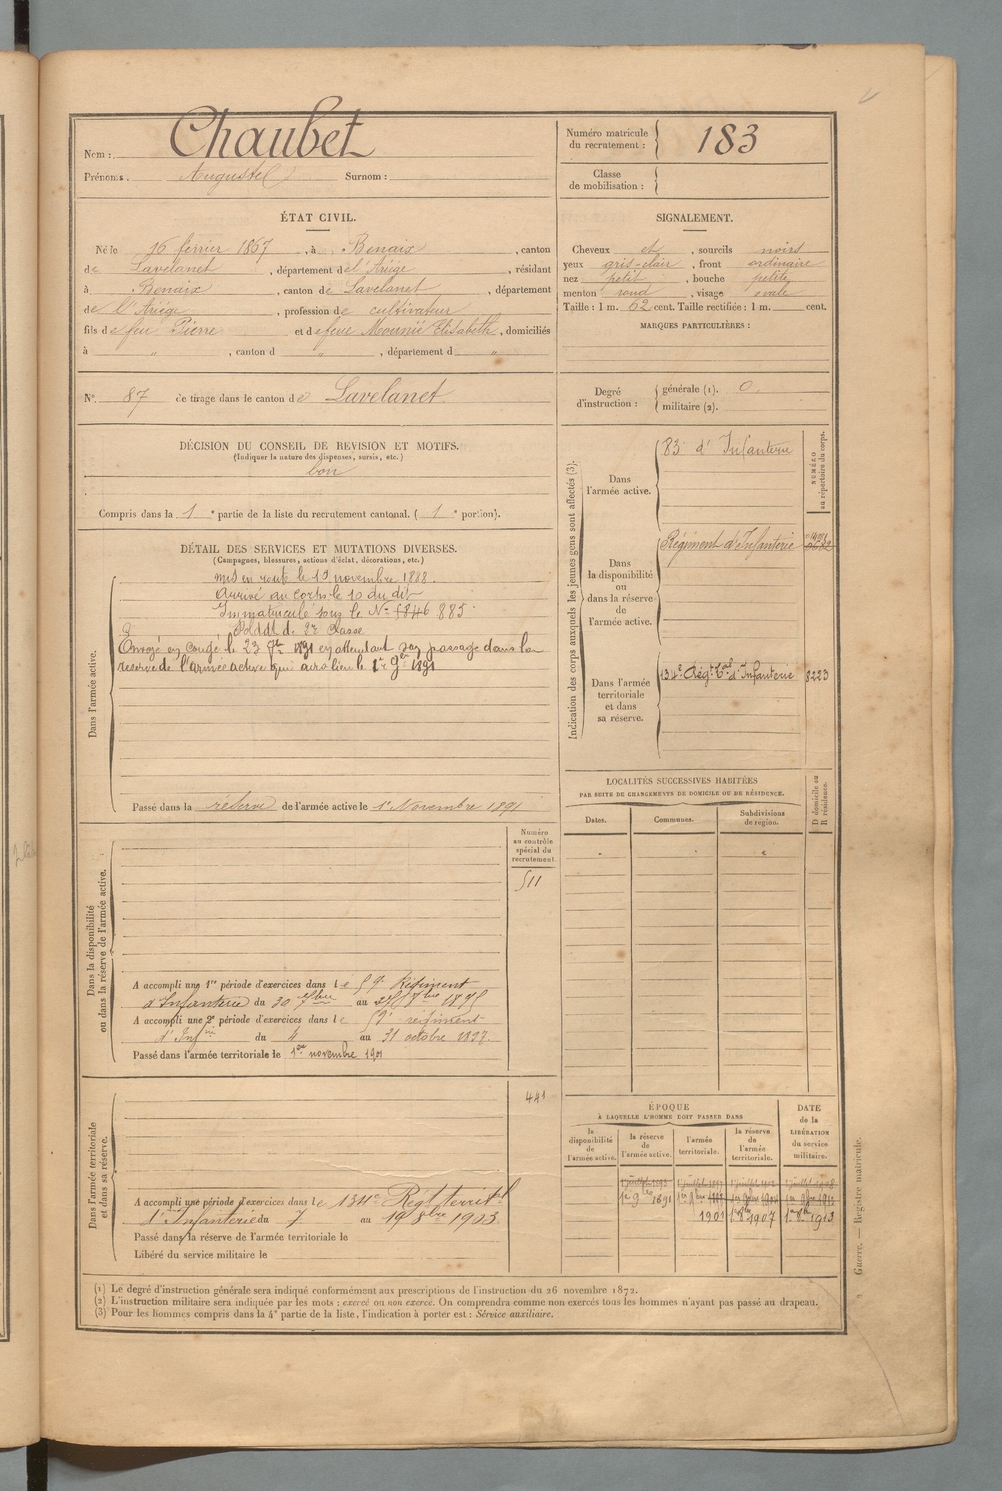 Nom : Chaubet
Prénoms : Auguste Surnom :
Numéro matricule du recrutement : 183
Classe de mobilisation :
ÉTAT CIVIL.
Né le 16 février 1867, à Benaix, canton
de Lavelanet, département de l'Ariège, résidant
à Benaix, canton de Lavelanet, département
de l'Ariège, profession de cultivateur
fils de feu Pierre et de feue Mounié Elisabeth, domiciliés
à " , canton d " , département d "
N° 87 de tirage dans le canton de Lavelanet
SIGNALEMENT.
Cheveux et , sourcils noirs
yeux gris-clair , front ordinaire
nez petit , bouche petite
menton rond , visage ovale
Taille : 1 m. 62 cent. Taille rectifiée : 1 m. cent.
MARQUES PARTICULIÈRES :
Degré d'instruction : générale (1). 0.
militaire (2).
DÉCISION DU CONSEIL DE REVISION ET MOTIFS.
(Indiquer la nature des dispenses, sursis, etc.)
bon
Compris dans la 1e partie de la liste du recrutement cantonal. ( 1e portion).
DÉTAIL DES SERVICES ET MUTATIONS DIVERSES.
(Campagnes, blessures, actions d'éclat, décorations, etc.)
Dans l'armée active.
mis en route le 15 novembre 1888.
Arrivé au corps le 15 du dit
Immatriculé sous le N° 885
Soldat de 2e classe
Envoyé en congé le 23 7bre 1891 en attendant son passage dans la
réserve de l'armée active qui aura lieu le 1er 9bre 1891
Passé dans la réserve de l'armée active le 1er Novembre 1891
Indication des corps auxquels les jeunes gens sont affectés (3).
NUMÉRO au répertoire du corps.
Dans l'armée active.
83 d'Infanterie
Dans la disponibilité ou dans la réserve de l'armée active.
Régiment d'Infanterie
Dans l'armée territoriale et dans sa réserve.
134e Régt tal d'Infanterie 8223
LOCALITÉS SUCCESSIVES HABITÉES
PAR SUITE DE CHANGEMENTS DE DOMICILE OU DE RÉSIDENCE.
Dates. Communes. Subdivisions de région. D domicile ou R résidence.
Dans la disponibilité ou dans la réserve de l'armée active.
Numéro au contrôle spécial du recrutement.
511
A accompli une 1re période d'exercices dans le 59e Régiment
d'Infanterie du 30 7bre au
A accompli une 2e période d'exercices dans le 59e régiment
d'Infrie du 4 au 31 octobre 1897.
Passé dans l'armée territoriale le 1er novembre 1901
Dans l'armée territoriale et dans sa réserve.
441
A accompli une période d'exercices dans le 134e Regt territal
d'Infanterie du 7 au 19 8bre 1903
Passé dans la réserve de l'armée territoriale le
Libéré du service militaire le
ÉPOQUE
À LAQUELLE L'HOMME DOIT PASSER DANS
DATE de la LIBÉRATION du service militaire.
la disponibilité de l'armée active. la réserve de l'armée active. l'armée territoriale. la réserve de l'armée territoriale.
1er 9bre 1891
1901 1907 1913
(1) Le degré d'instruction générale sera indiqué conformément aux prescriptions de l'instruction du 26 novembre 1872.
(2) L'instruction militaire sera indiquée par les mots : exercé ou non exercé. On comprendra comme non exercés tous les hommes n'ayant pas passé au drapeau.
(3) Pour les hommes compris dans la 4e partie de la liste, l'indication à porter est : Service auxiliaire.
Guerre. — Registre matricule.